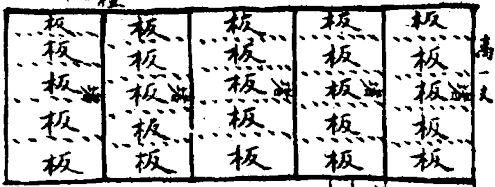 板 板 板 板 板
板 板 板 板 板
板 板 板 板 板
板 板 板 板 板
板 板 板 板 板
高一丈